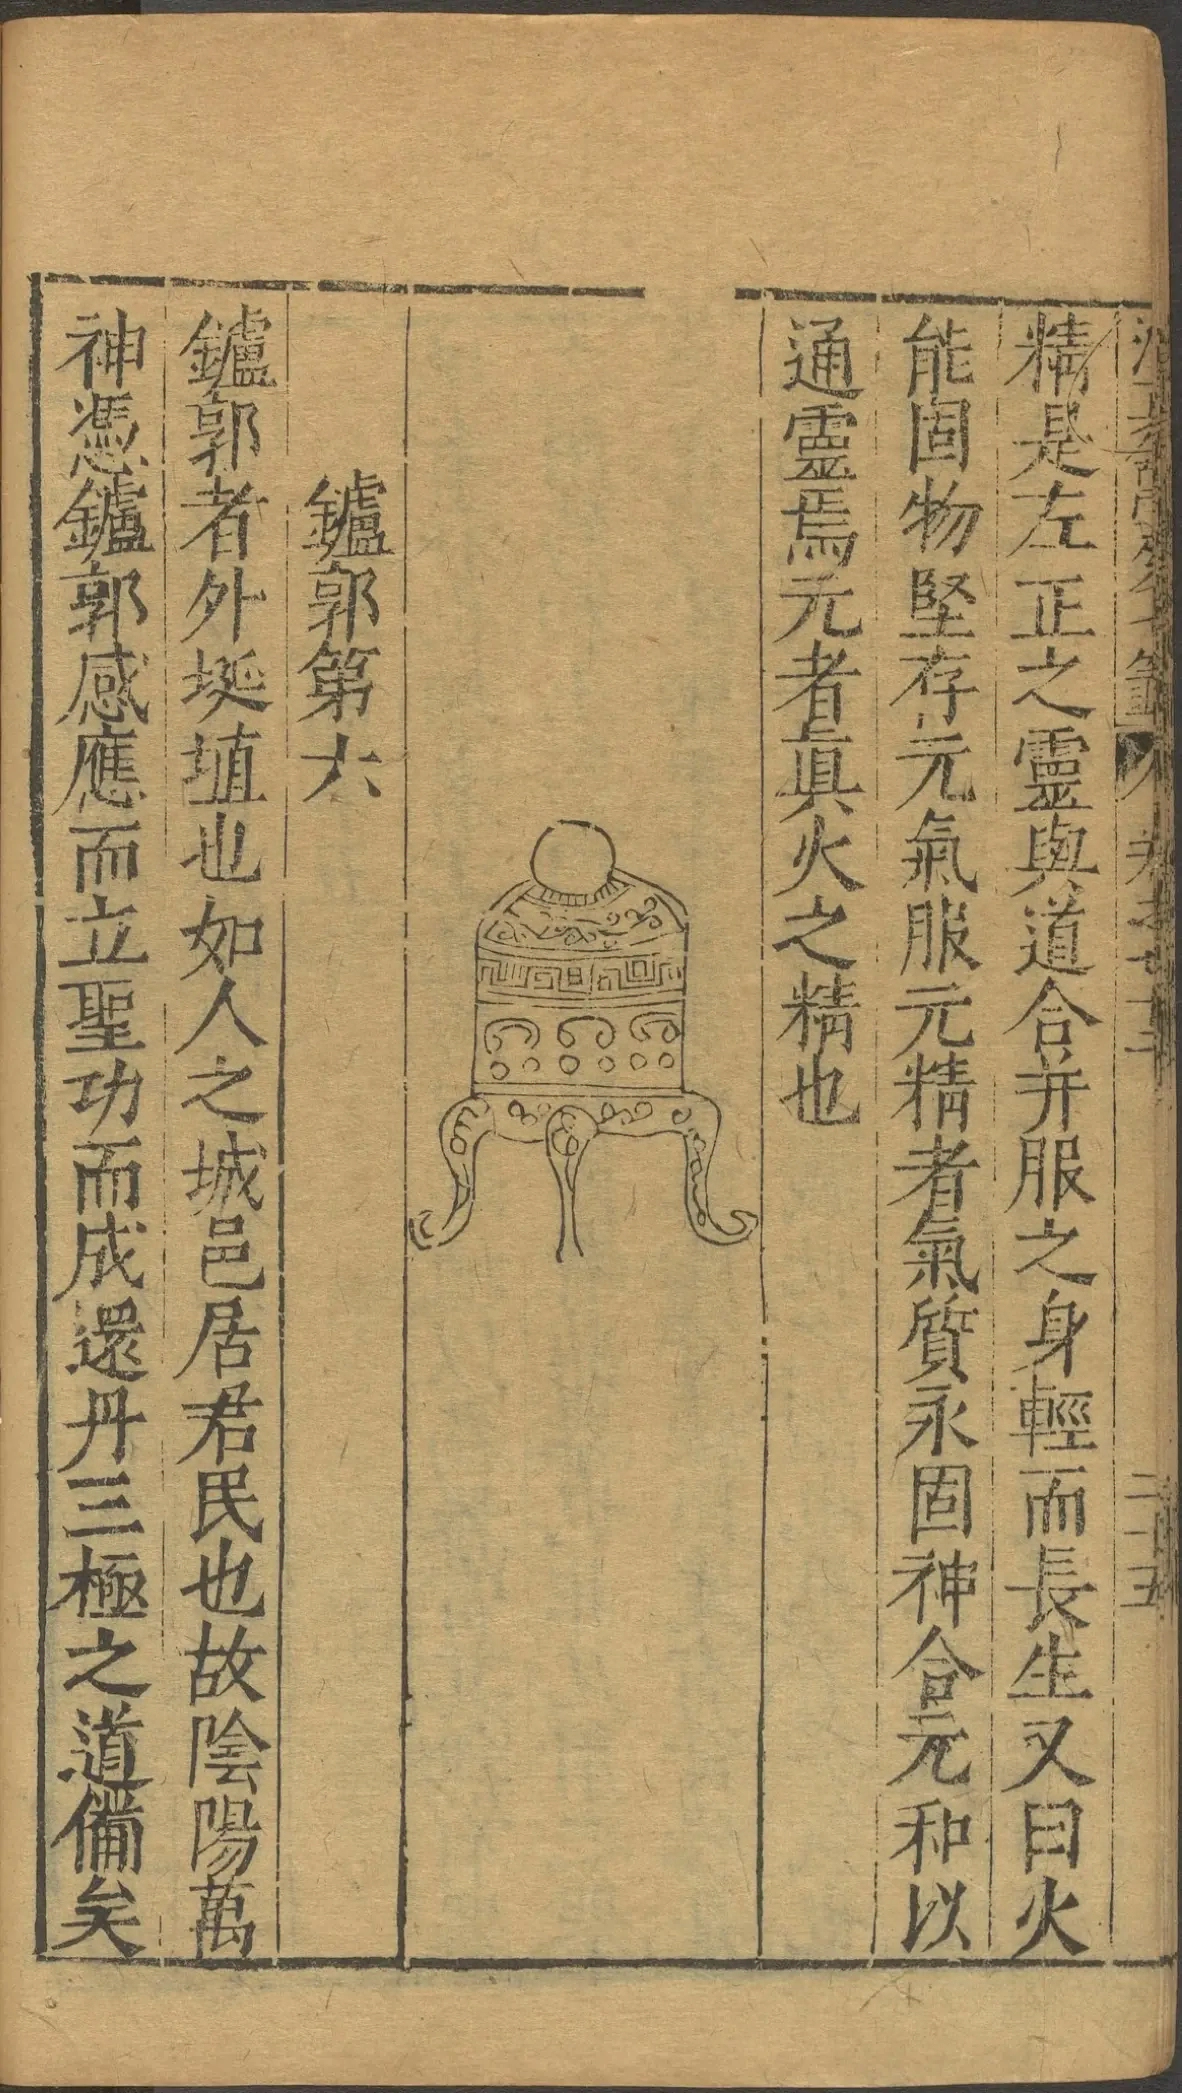 精是左正之靈與道合并服之身輕而長生又曰火
能固物堅存元氣服元精者氣質永固神合元和以
通靈焉元者真火之精也
鑪郭第六
鑪郭者外埏埴也如人之城邑居君民也故陰陽萬
神憑鑪郭感應而立聖功而成還丹三極之道備矣